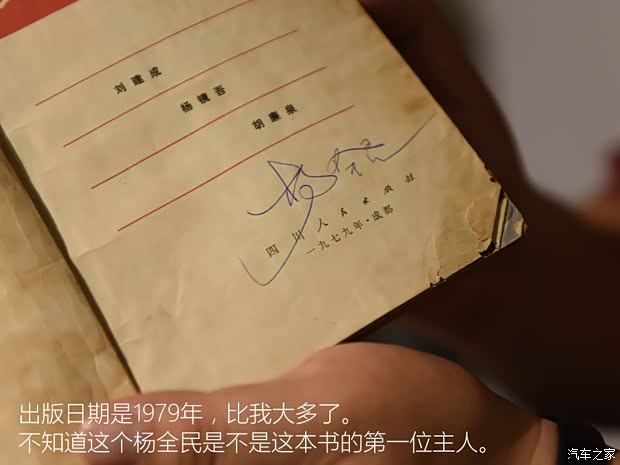 刘建成
杨镜吾
胡慶泉
四川人民出版社
一九七九年·成都
出版日期是1979年，比我大多了。
不知道这个杨全民是不是这本书的第一位主人。
汽车之家